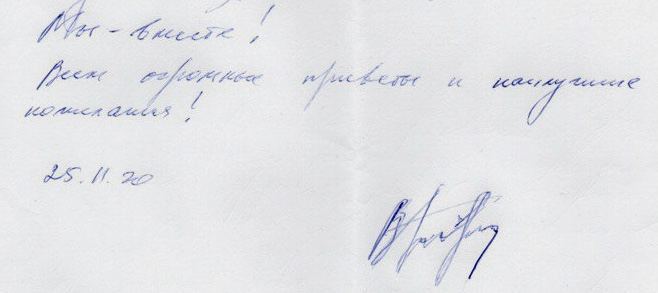 Мы - вместе!
Всем огромные приветы и наилучшие
пожелания!
25.11.20